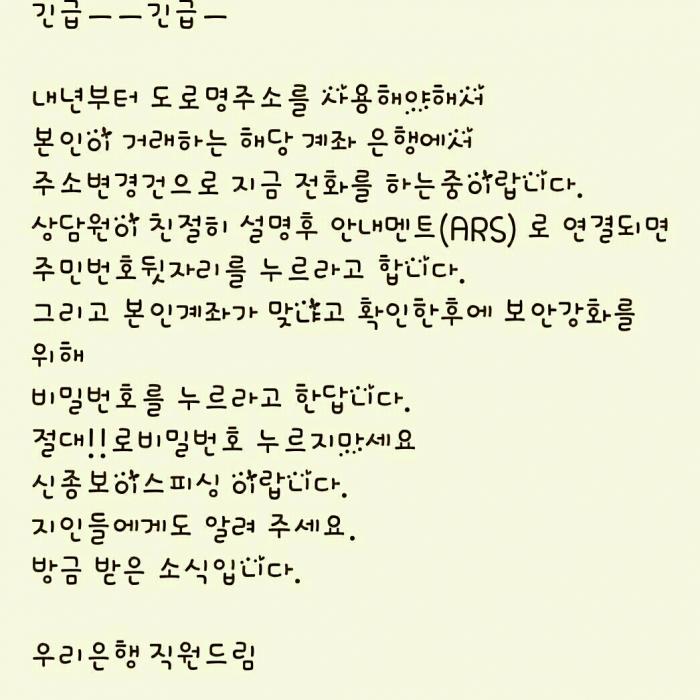 긴급ㅡㅡ긴급ㅡ
내년부터 도로명주소를 사용해야해서
본인이 거래하는 해당 계좌 은행에서
주소변경건으로 지금 전화를 하는중이랍니다.
상담원이 친절히 설명후 안내멘트(ARS) 로 연결되면
주민번호뒷자리를 누르라고 합니다.
그리고 본인계좌가 맞냐고 확인한후에 보안강화를
위해
비밀번호를 누르라고 한답니다.
절대!!로비밀번호 누르지마세요
신종보이스피싱 이랍니다.
지인들에게도 알려 주세요.
방금 받은 소식입니다.
우리은행 직원드림